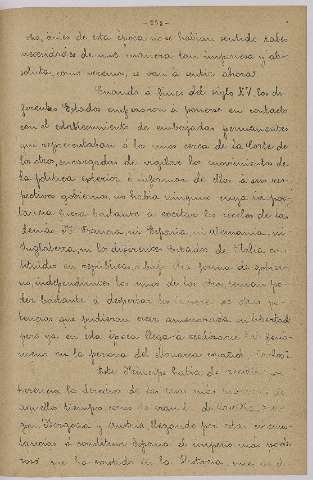 tes, antes de esta época no se habían sentido tales
necesidades de una manera tan imperiosa y ab-
soluta, como veremos, se van á sentir ahora.
Cuando á fines del siglo XV, los di-
ferentes Estados empezaron á ponerse en contacto
con el establecimiento de embajadas permanentes
que representaban á los unos cerca de la Corte de
los otros, encargadas de vigilar los movimientos de
la política exterior é informar de ellos á sus res-
pectivos gobiernos, no había ninguno cuya im por-
tancia fuera bastante á excitar los recelos de los
demás. Ni Francia, ni España, ni Alemania, ni
Inglaterra, ni los diferentes Estados de Italia cons-
tituidos en repúblicas ó bajo otra forma de gobier-
no, independientes los unos de los otros, tenían po-
der bastante á despertar los de otras po-
tencias que pudieran creer amenazada su libertad
pero ya en esta época llega á realizarse este fenó-
meno en la persona del Monarca español
Este Príncipe había de reunir en
herencia los derechos de las
aquellos tiempos como eran de Castilla, Ara-
gón, Borgoña y Austria llegando por estas circuns-
tancias á constituir España el imperio más pode-
roso que ha existido en la Historia,